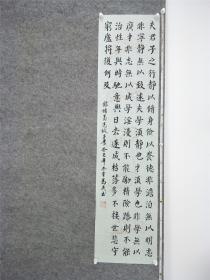 夫君子之行靜以脩身儉以養德非澹泊無以明志
非寧靜無以致遠夫學須靜也才須學也非學無以
廣才非志無以成學淫漫則不能勵精險躁則不能
治性年與時馳意與日去遂成枯落多不接世悲守
窮廬將復何及
錄諸葛亮誡子書